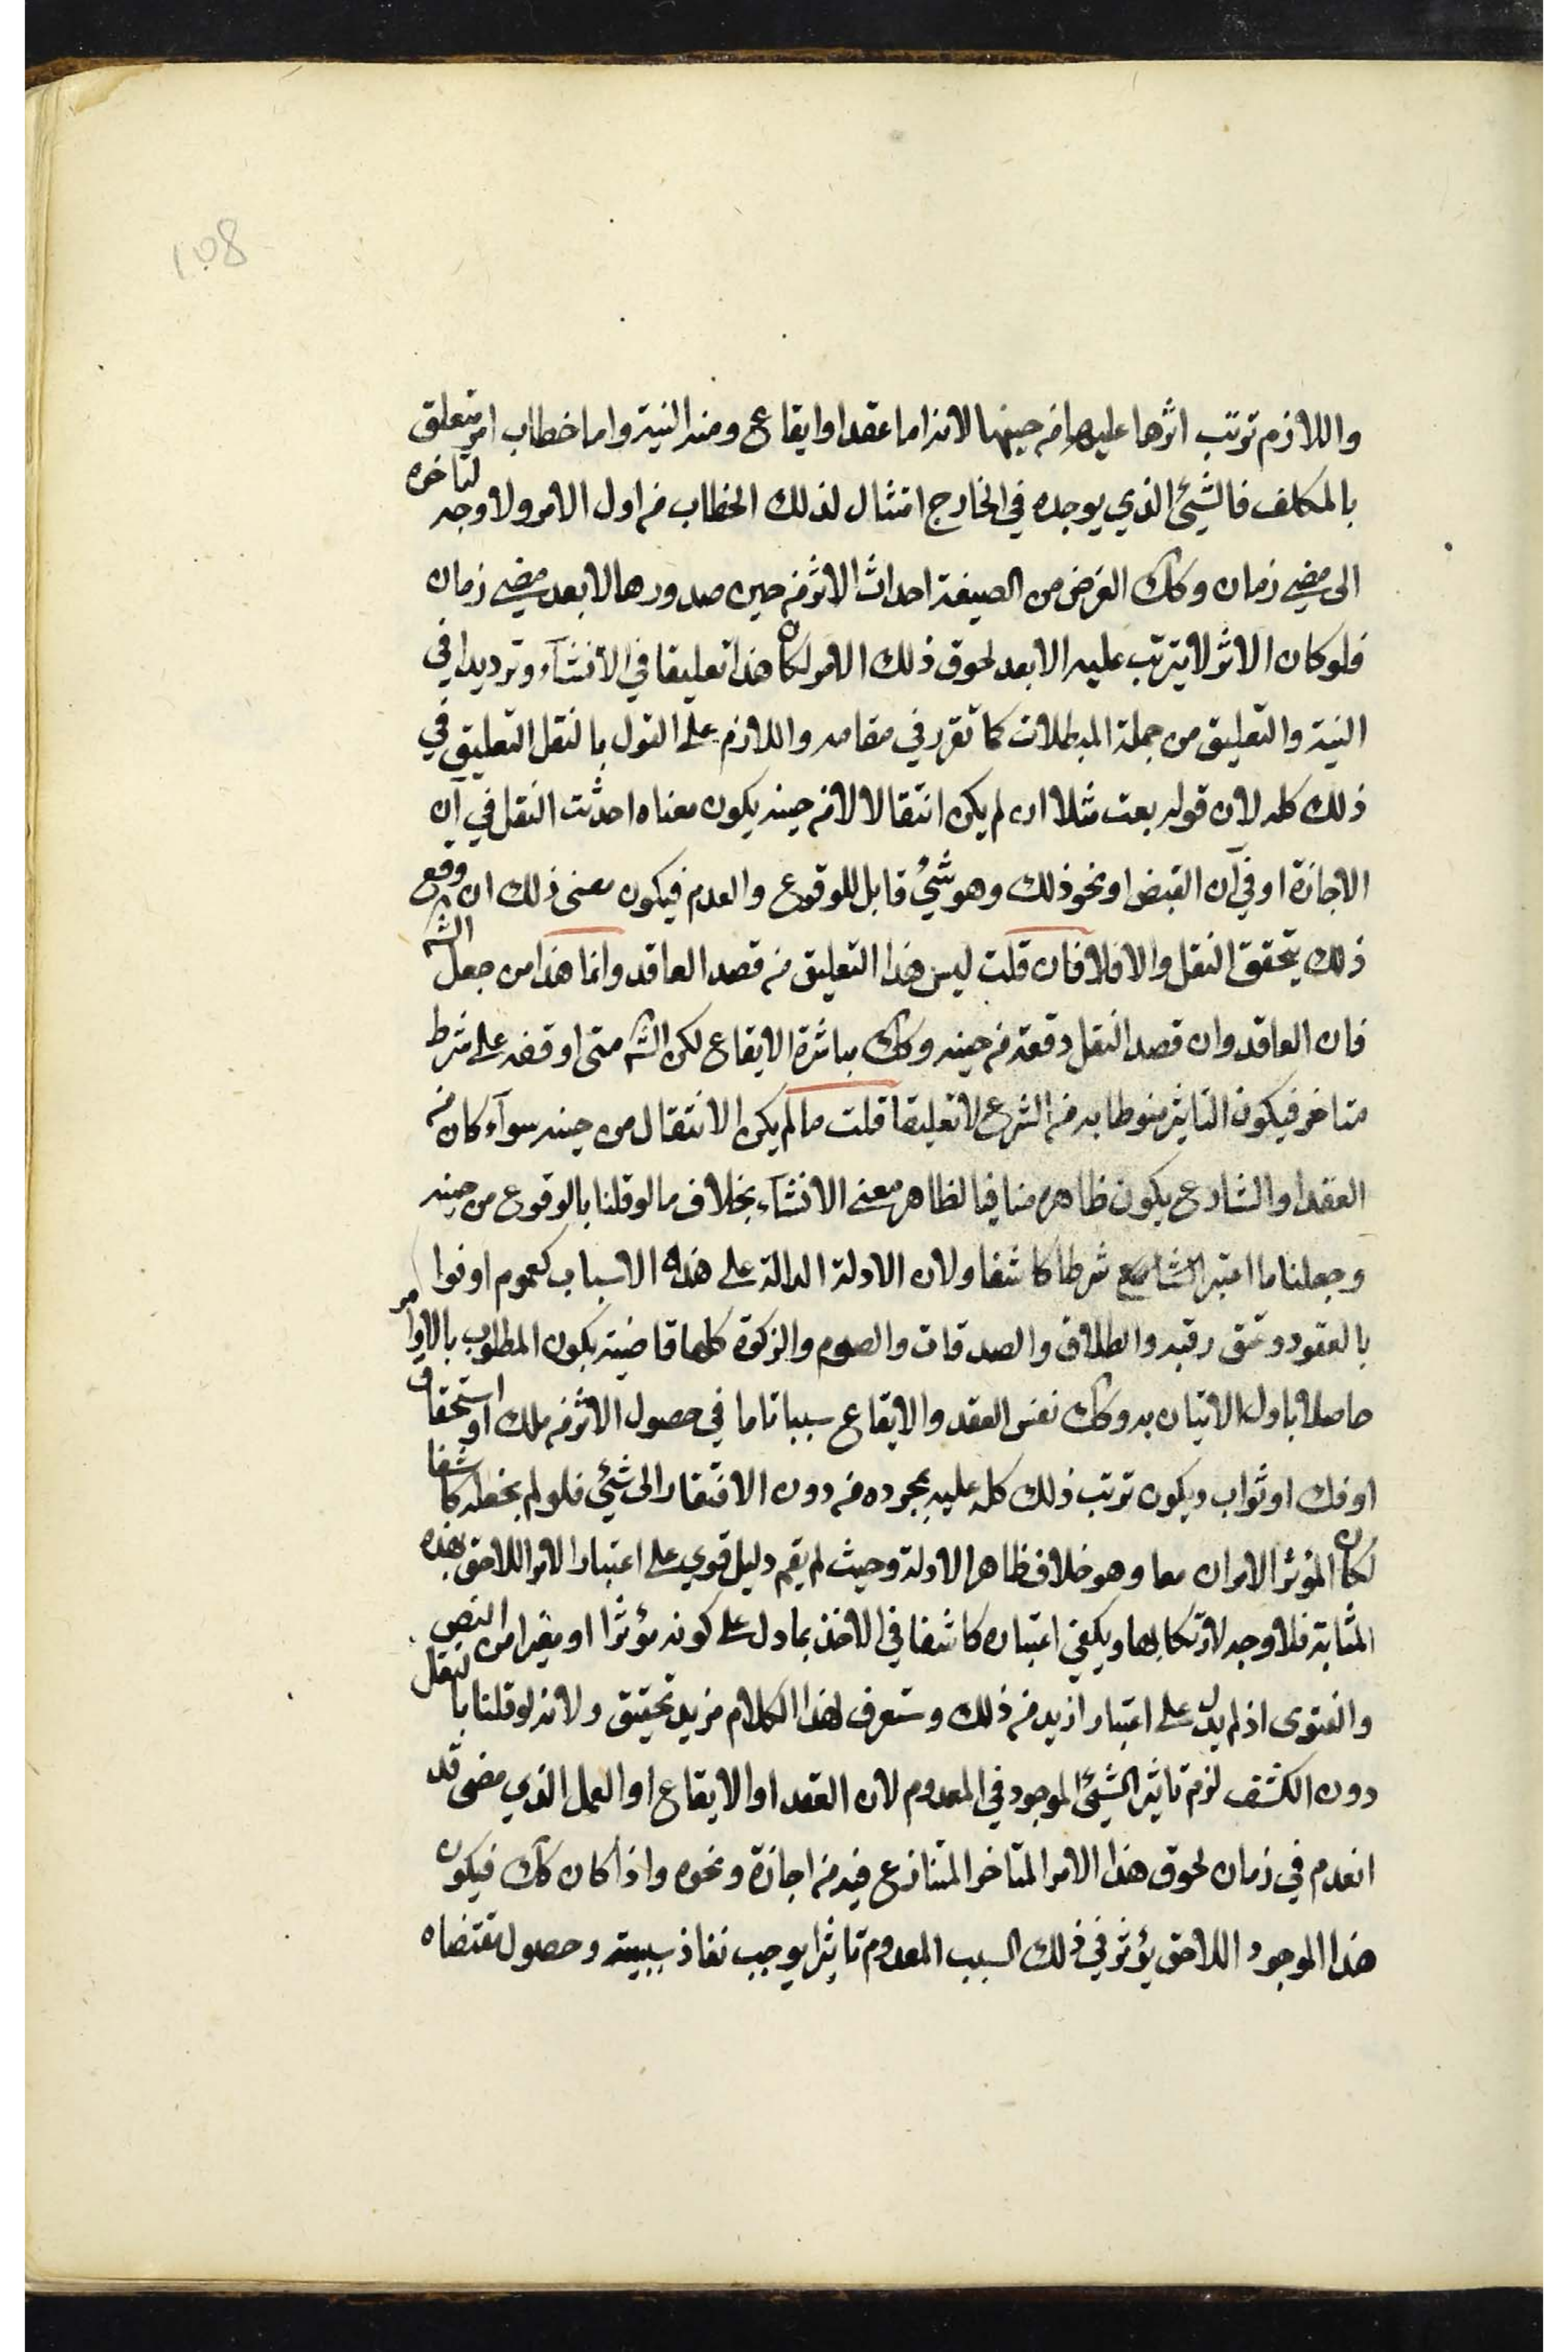 ١٥٨
واللازم ترتب اثرها عليها من حينها لانه اما عقد او ايقاع ومنه النية واما خطاب امر متعلق
بالمكلف فالشيئ الذي يوجده في الخارج امتثال لذلك الخطاب من اول الامر ولا وجه لتاخره
الى مضي زمان وكك الغرض من الصيغة احداث الاثر من حين صدورها لا بعد مضي زمان
فلو كان الاثر لا يترتب عليه الا بعد لحوق ذلك الامر لكان هذا تعليقا في الانشآء وترديدا في
النية والتعليق من جملة المبطلات كما تقرر في مقامه واللازم على القول بالنقل التعليق في
ذلك كله لان قوله بعت مثلا ان لم يكن انتقالا لا من حينه يكون معناه احدثت النقل في آن
الاجازة او في آن القبض او نحو ذلك وهو شيئ قابل للوقوع والعدم فيكون معنى ذلك ان وقع
ذلك يتحقق النقل والا فلا فان قلت ليس هذا التعليق من قصد العاقد وانما هذا من جعل الشم
فان العاقد وان قصد النقل دفعة من حينه وكك مباشرة الايقاع لكن الشم متى اوقفه على شرط
متاخر فيكون التاثير منوطا به من الشرع لا تعليقا قلت ما لم يكن الانتقال من حينه سوآء كان من
العقد او الشارع يكون ظاهره منافيا لظاهر معنى الانشآء بخلاف ما لو قلنا بالوقوع من حينه
وجعلنا ما اعتبره الشارع شرطا كاشفا ولان الادلة الدالة على هذه الاسباب كعموم اوفوا
بالعقود وعتق رقبه والطلاق والصدقات والصوم والزكوة كلها قاضية بكون المطلوب بالاوامر
حاصلا باول الاتيان به وكك نفس العقد والايقاع سببا تاما في حصول الاثر من ملك او استحقاق
او فك او ثواب ويكون ترتب ذلك كله عليه بمجرده من دون الافتقار الى شيئ فلو لم نجعله كاشفا
لكان المؤثر الامران معا وهو خلاف ظاهر الادلة وحيث لم يقم دليل قوي على اعتبار الامر اللاحق بهذه
المثابة فلا وجه لارتكابها ويكفي اعتباره كاشفا في الاخذ بما دل على كونه مؤثرا او مغيرا من النص
والفتوى اذ لم يدل على اعتبار ازيد من ذلك وستعرف لهذا الكلام مزيد تحقيق ولانه لو قلنا بالنقل
دون الكشف لزم تاثير الشيئ الموجود في المعدوم لان العقد او الايقاع او العمل الذي مضى قد
انعدم في زمان لحوق هذا الامر المتاخر المتنازع فيه من اجازة ونحوه واذا كان كك فيكون
هذا الموجود اللاحق يؤثر في ذلك السبب المعدوم تاثيرا يوجب نفاذ سببيته وحصول مقتضاه